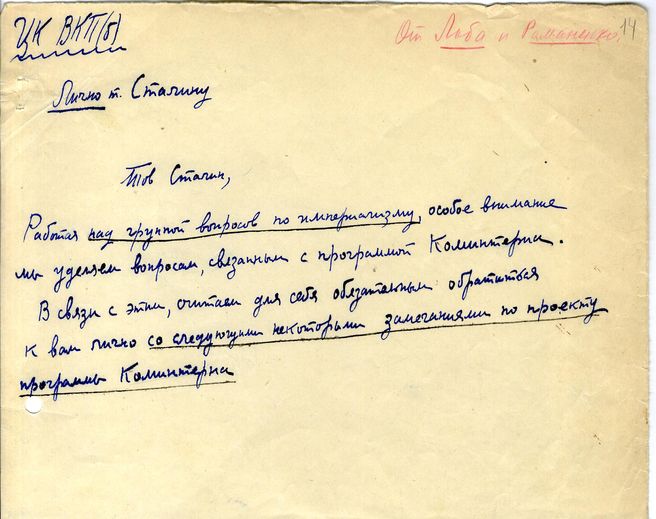 ЦК ВКП(б)
От Лоба и Романенко.
14
Лично т. Сталину
Тов Сталин,
Работая над группой вопросов по империализму, особое внимание
мы уделяем вопросам, связанным с программой Коминтерна.
В связи с этим, считаем для себя обязательным обратиться
к вам лично со следующими некоторыми замечаниями по проекту
программы Коминтерна